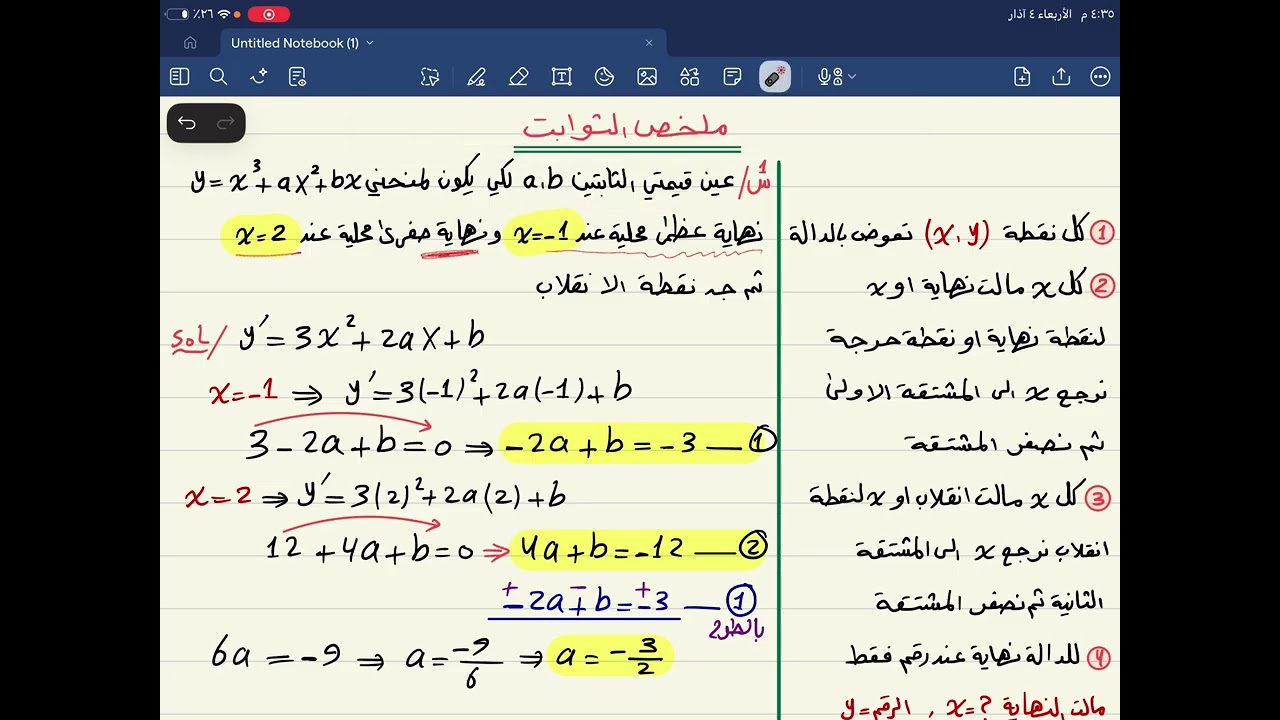 ٤:٣٥ م الأربعاء ٤ آذار
٪٢٦
Untitled Notebook (1)
ملخص الثوابت
س١/ عين قيمتي الثابتين a،b لكي يكون لمنحني y = x³ + ax² + bx
نهاية عظمى محلية عند x=-1 ونهاية صغرى محلية عند x=2
ثم جد نقطة الانقلاب
sol/ y′ = 3x² + 2ax + b
x=-1 ⇒ y′ = 3(-1)² + 2a(-1) + b
3 - 2a + b = 0 ⇒ -2a + b = -3 — ①
x=2 ⇒ y′ = 3(2)² + 2a(2) + b
12 + 4a + b = 0 ⇒ 4a + b = -12 — ②
+ - +
-2a + b = -3 — ①
بالطرح
6a = -9 ⇒ a = -9/6 ⇒ a = -3/2
① كل نقطة (x,y) تعوض بالدالة
② كل x مالت نهاية او x
لنقطة نهاية او نقطة حرجة
نرجع x الى المشتقة الاولى
ثم نصفر المشتقة
③ كل x مالت انقلاب او x لنقطة
انقلاب نرجع x الى المشتقة
الثانية ثم نصفر المشتقة
④ للدالة نهاية عند رقم فقط
مالت النهاية x=? , الرقم=y